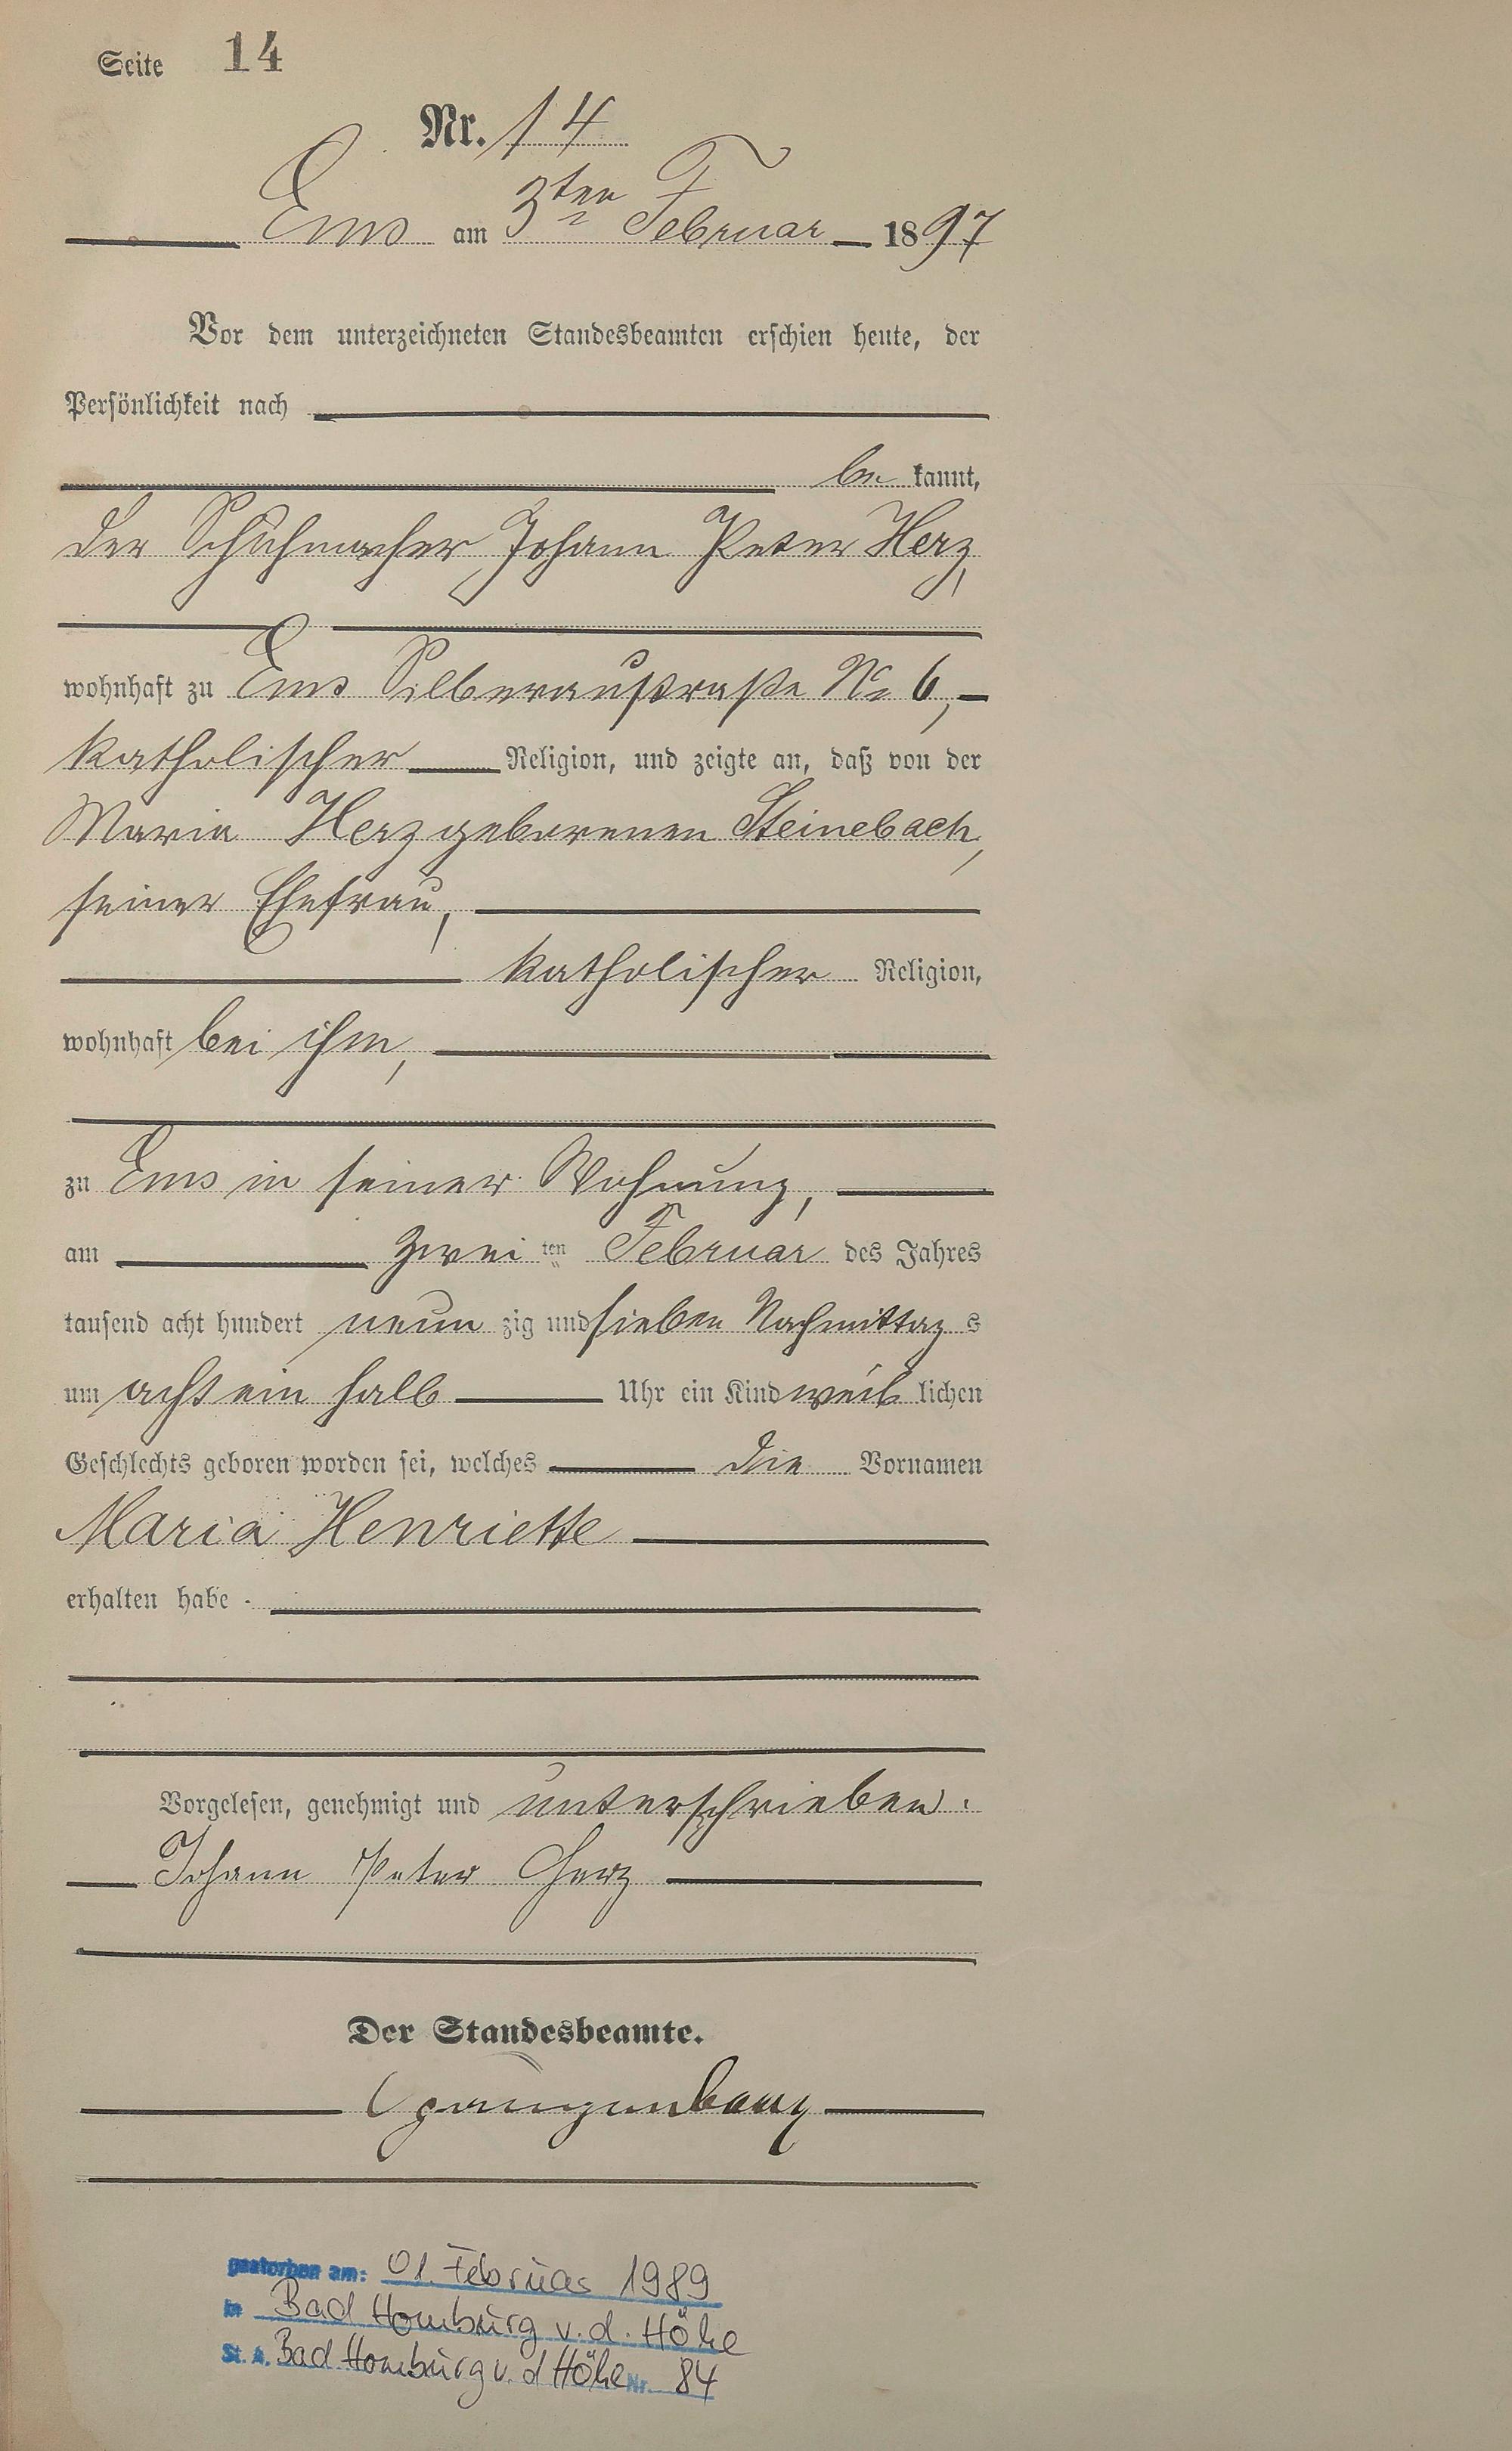 Seite 14
Nr. 14
Ems am 3ten Februar 1897
Vor dem unterzeichneten Standesbeamten erschien heute, der
Persönlichkeit nach
be kannt,
der Schuhmacher Johann Peter Herz,
wohnhaft zu Ems Silberaustraße No 6,
katholischer Religion, und zeigte an, daß von der
Maria Herz geborenen Steinebach,
seiner Ehefrau,
katholischer Religion,
wohnhaft bei ihm,
zu Ems in seiner Wohnung,
am zwei ten Februar des Jahres
tausend acht hundert neun zig und sieben Nachmittag s
um acht ein halb Uhr ein Kind weib lichen
Geschlechts geboren worden sei, welches die Vornamen
Maria Henriette
erhalten habe.
Vorgelesen, genehmigt und unterschrieben.
Johann Peter Herz
Der Standesbeamte.
gestorben am: 01. Februar 1989
in Bad Homburg v. d. Höhe
St. A. Bad Homburg v. d Höhe Nr. 84